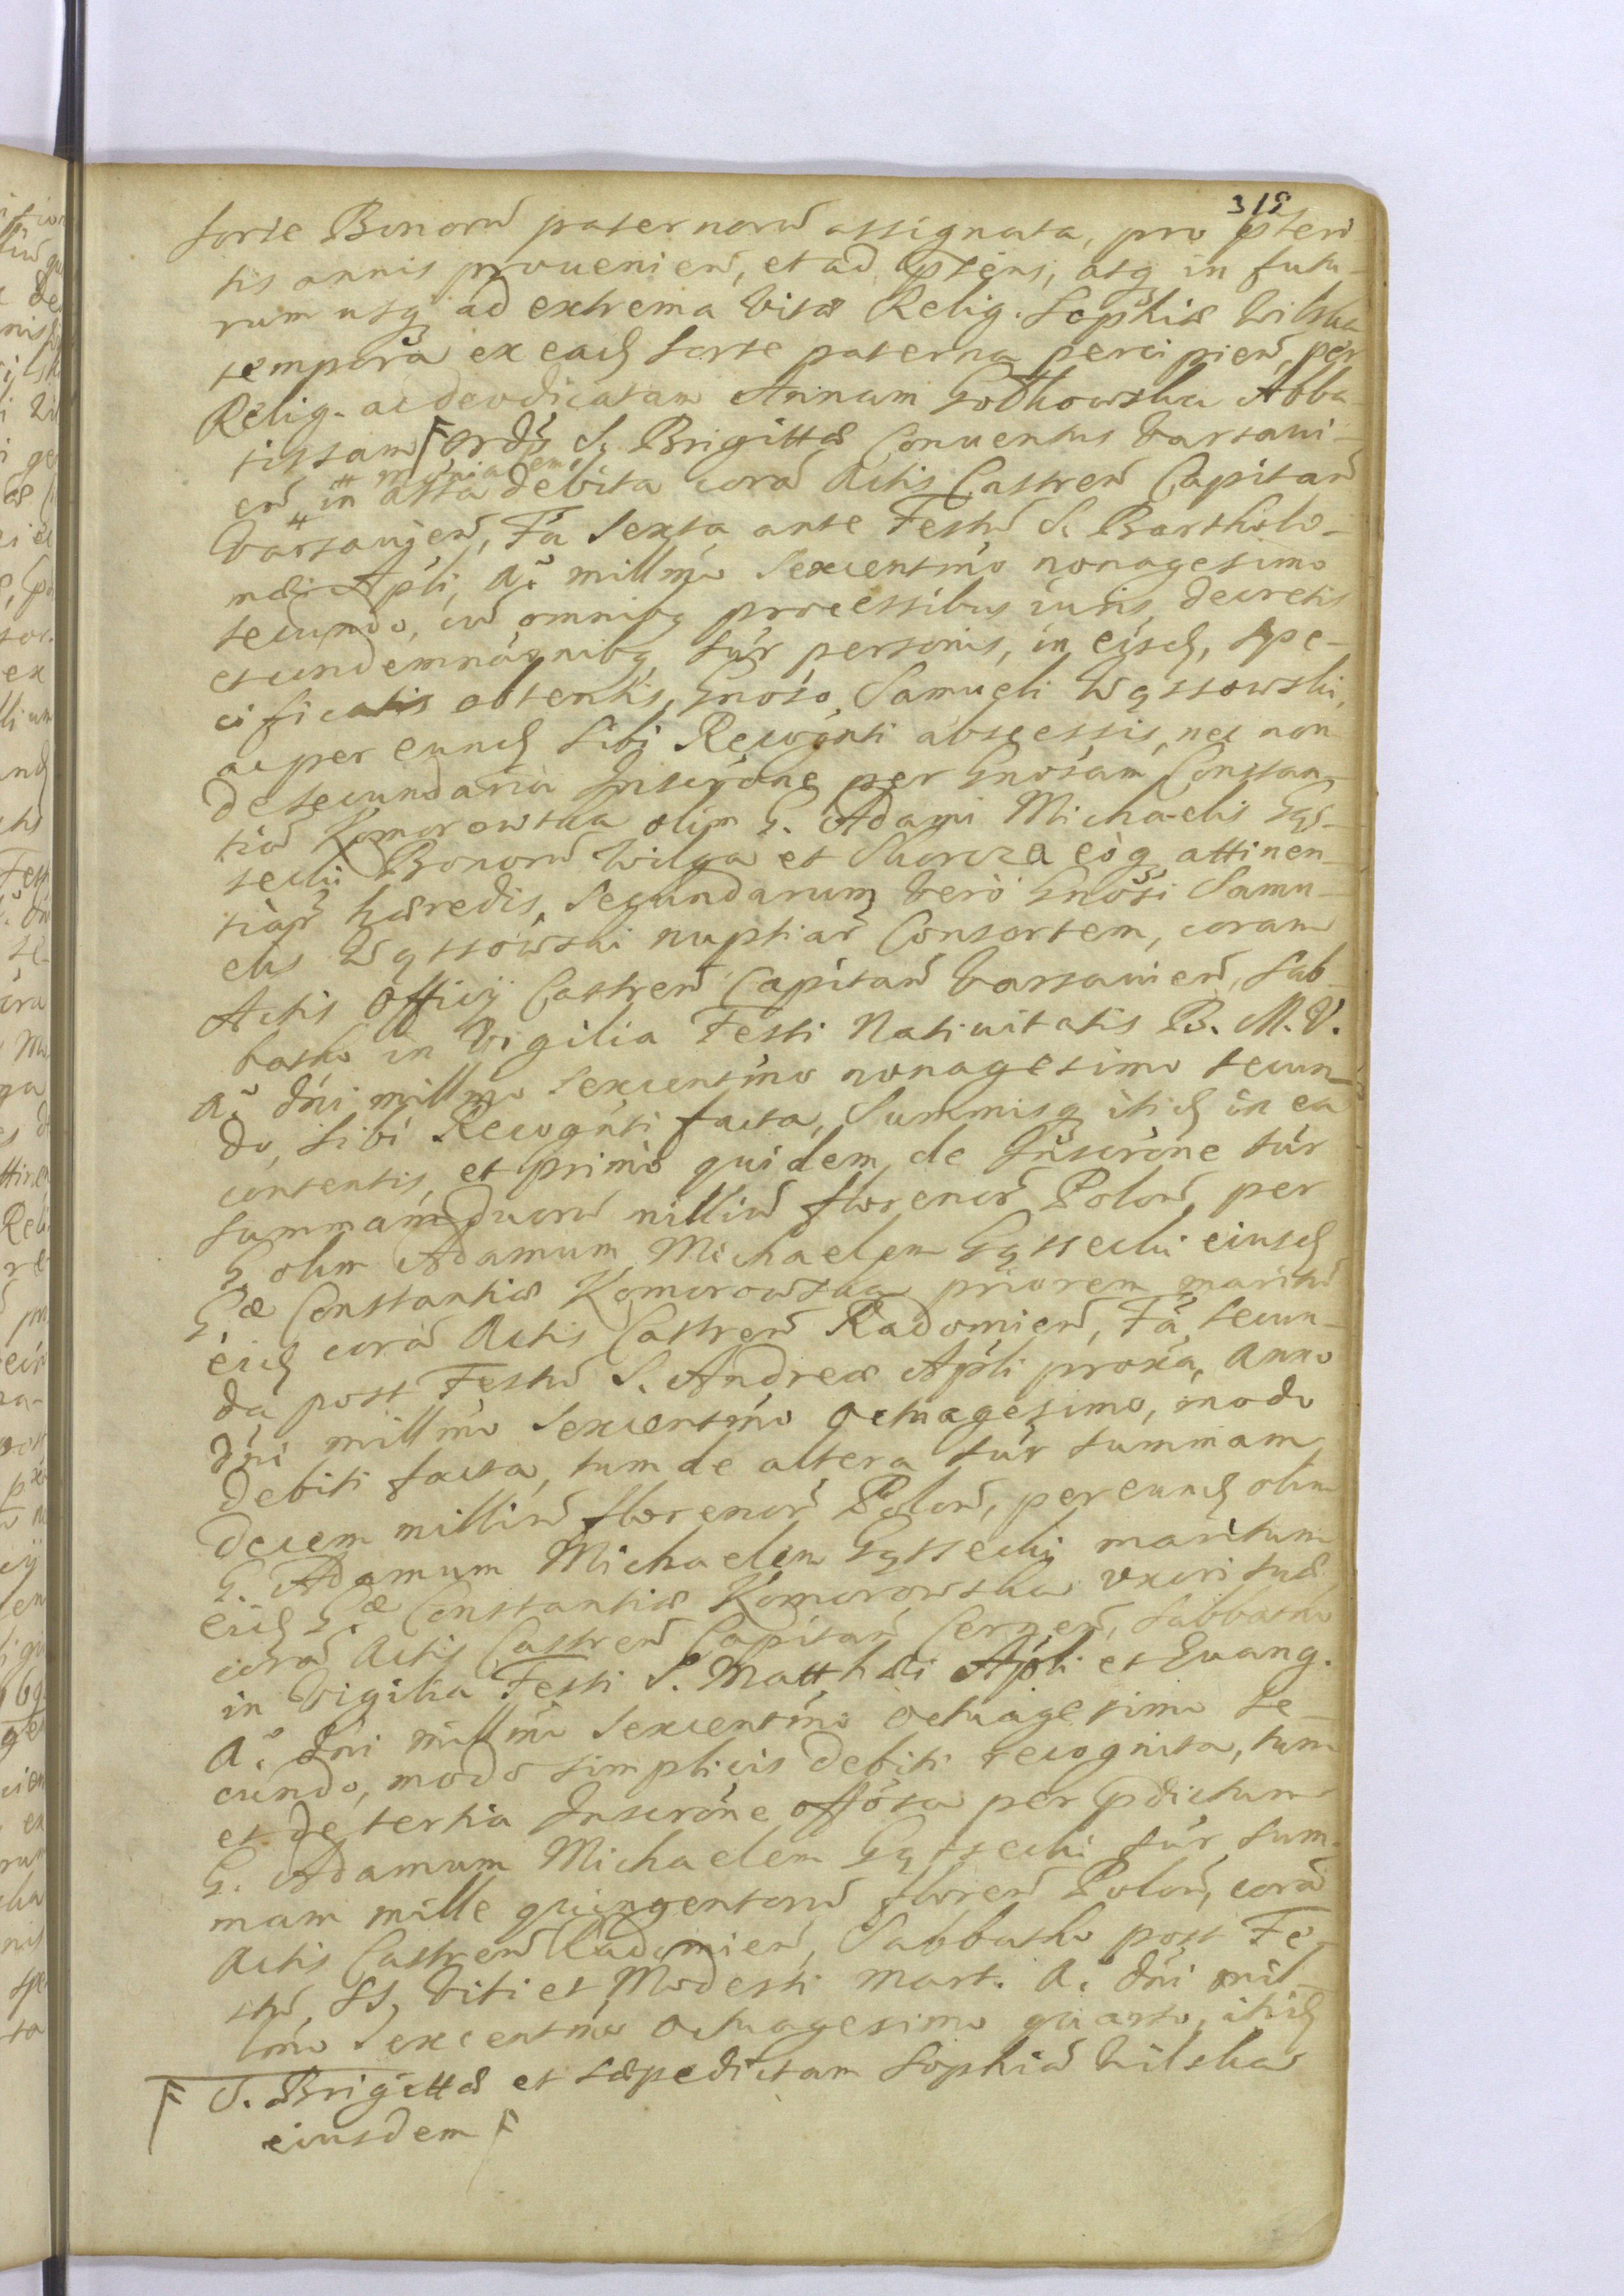 319
sorte Bonorũ paternorũ assignata, pro p̃teri
tis annis prouenieñ, et ad p̃sens, atq̃ in futu-
rum usq̃ ad extrema vitæ Relig. Sophiæ Wilska
tempora ex eadẽ sorte paterna percipieñ, per
Relig. ac deodicatam Annam Gotkowska Abba-
tissam F Ordĩs S. Brigittæ Conuentus Varsaui-
eñ # in asta debita corã Actis Castreñ Capitañ
# monialem
Varsauieñ, Fã Sexta ante Festũ S. Bartholo-
mæi Apli, Aº millmo Sexcentmo nonagesimo
secundo, cũ omnibq̃ processibus iuris, decretis
et condemnãonibq̃ súr personis, in eisdẽ, spe-
cificatis obtentis, Gnoso Samueli Wąssowski,
ac per eundẽ sibi Recognti abscessis, nec non
de secundaria Inscrõne per Gnosam Constan-
tiã Komorowska olim G. Adami Michaelis Gąs-
secki Bonorũ Wilga et Skurcza eõq̃ attinen-
tiar̃ hæredis, Secundarum verò Gnosi Samu-
elis Wąssowski nuptiar̃ Consortem, coram
Actis Officij Castreñ Capitañ Varsauieñ, Sab-
batho in Vigilia Festi Natiuitatis B. M. V.
Aº dni millmo Sexcentmo nonagesimo secun-
do, sibi Recognti facta, Summisq̃ itidẽ in ea
contentis, et primò quidem de Inscrõne súr
summam duorũ milliũ florenor̃ Poloñ, per
G. olim Adamum Michaelem Gąssecki eiusdẽ
G.æ Constantiæ Komorowska priorem maritũ
eidẽ corã Actis Castreñ Radomieñ, Fã secun-
da post Festũ S. Andreæ Apli proxa, Anno
dni millmo Sexcentmo Octuagesimo, modo
debiti facta, tum de altera súr summam
decem milliũ florenor̃ Poloñ, per eundẽ olim
G. Adamum Michaelem Gąssecki maritum
eidẽ G.æ Constantiæ Komorowska uxori suæ
corã Actis Castreñ Capitañ Cerneñ, Sabbatho
in Vigilia Festi S. Matthæi Apli et Euang.
Aº dni millmo Sexcentmo Octuagesimo se-
cundo, modo simplicis debiti recognita, tum
et de tertia Inscrõne per p̃dictum
G. Adamum Michaelem Gąssecki súr sum-
mam mille quingentorũ floreñ Poloñ, corã
Actis Castreñ Radomieñ, Sabbatho post Fe-
stũ SS. Viti et Modesti Mart. Aº dni mil-
lmo Sexcentmo Octuagesimo quarto, itidẽ
F S. Brigittæ et sæpedictam Sophiã Wilska
eiusdem F